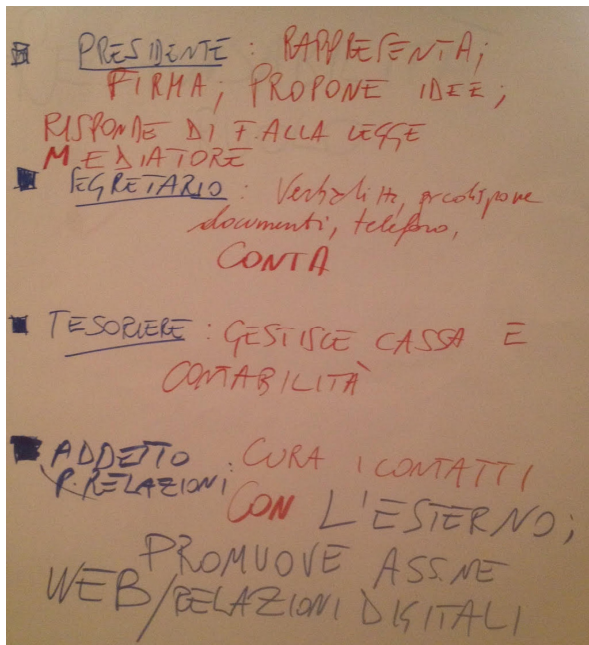 PRESIDENTE: RAPPRESENTA;
FIRMA; PROPONE IDEE;
RISPONDE DI F. ALLA LEGGE
MEDIATORE
SEGRETARIO:
documenti, telefono,
CONTA
TESORIERE: GESTISCE CASSA E
CONTABILITÀ
ADDETTO : CURA I CONTATTI
P. RELAZIONI CON L'ESTERNO;
PROMUOVE ASS.NE
WEB/RELAZIONI DIGITALI